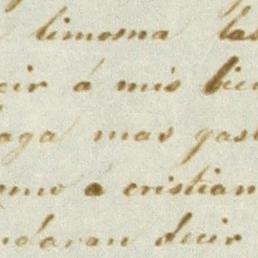 limosna las
cir á mis bie
aga mas gast
como a cristian
ndaran decir